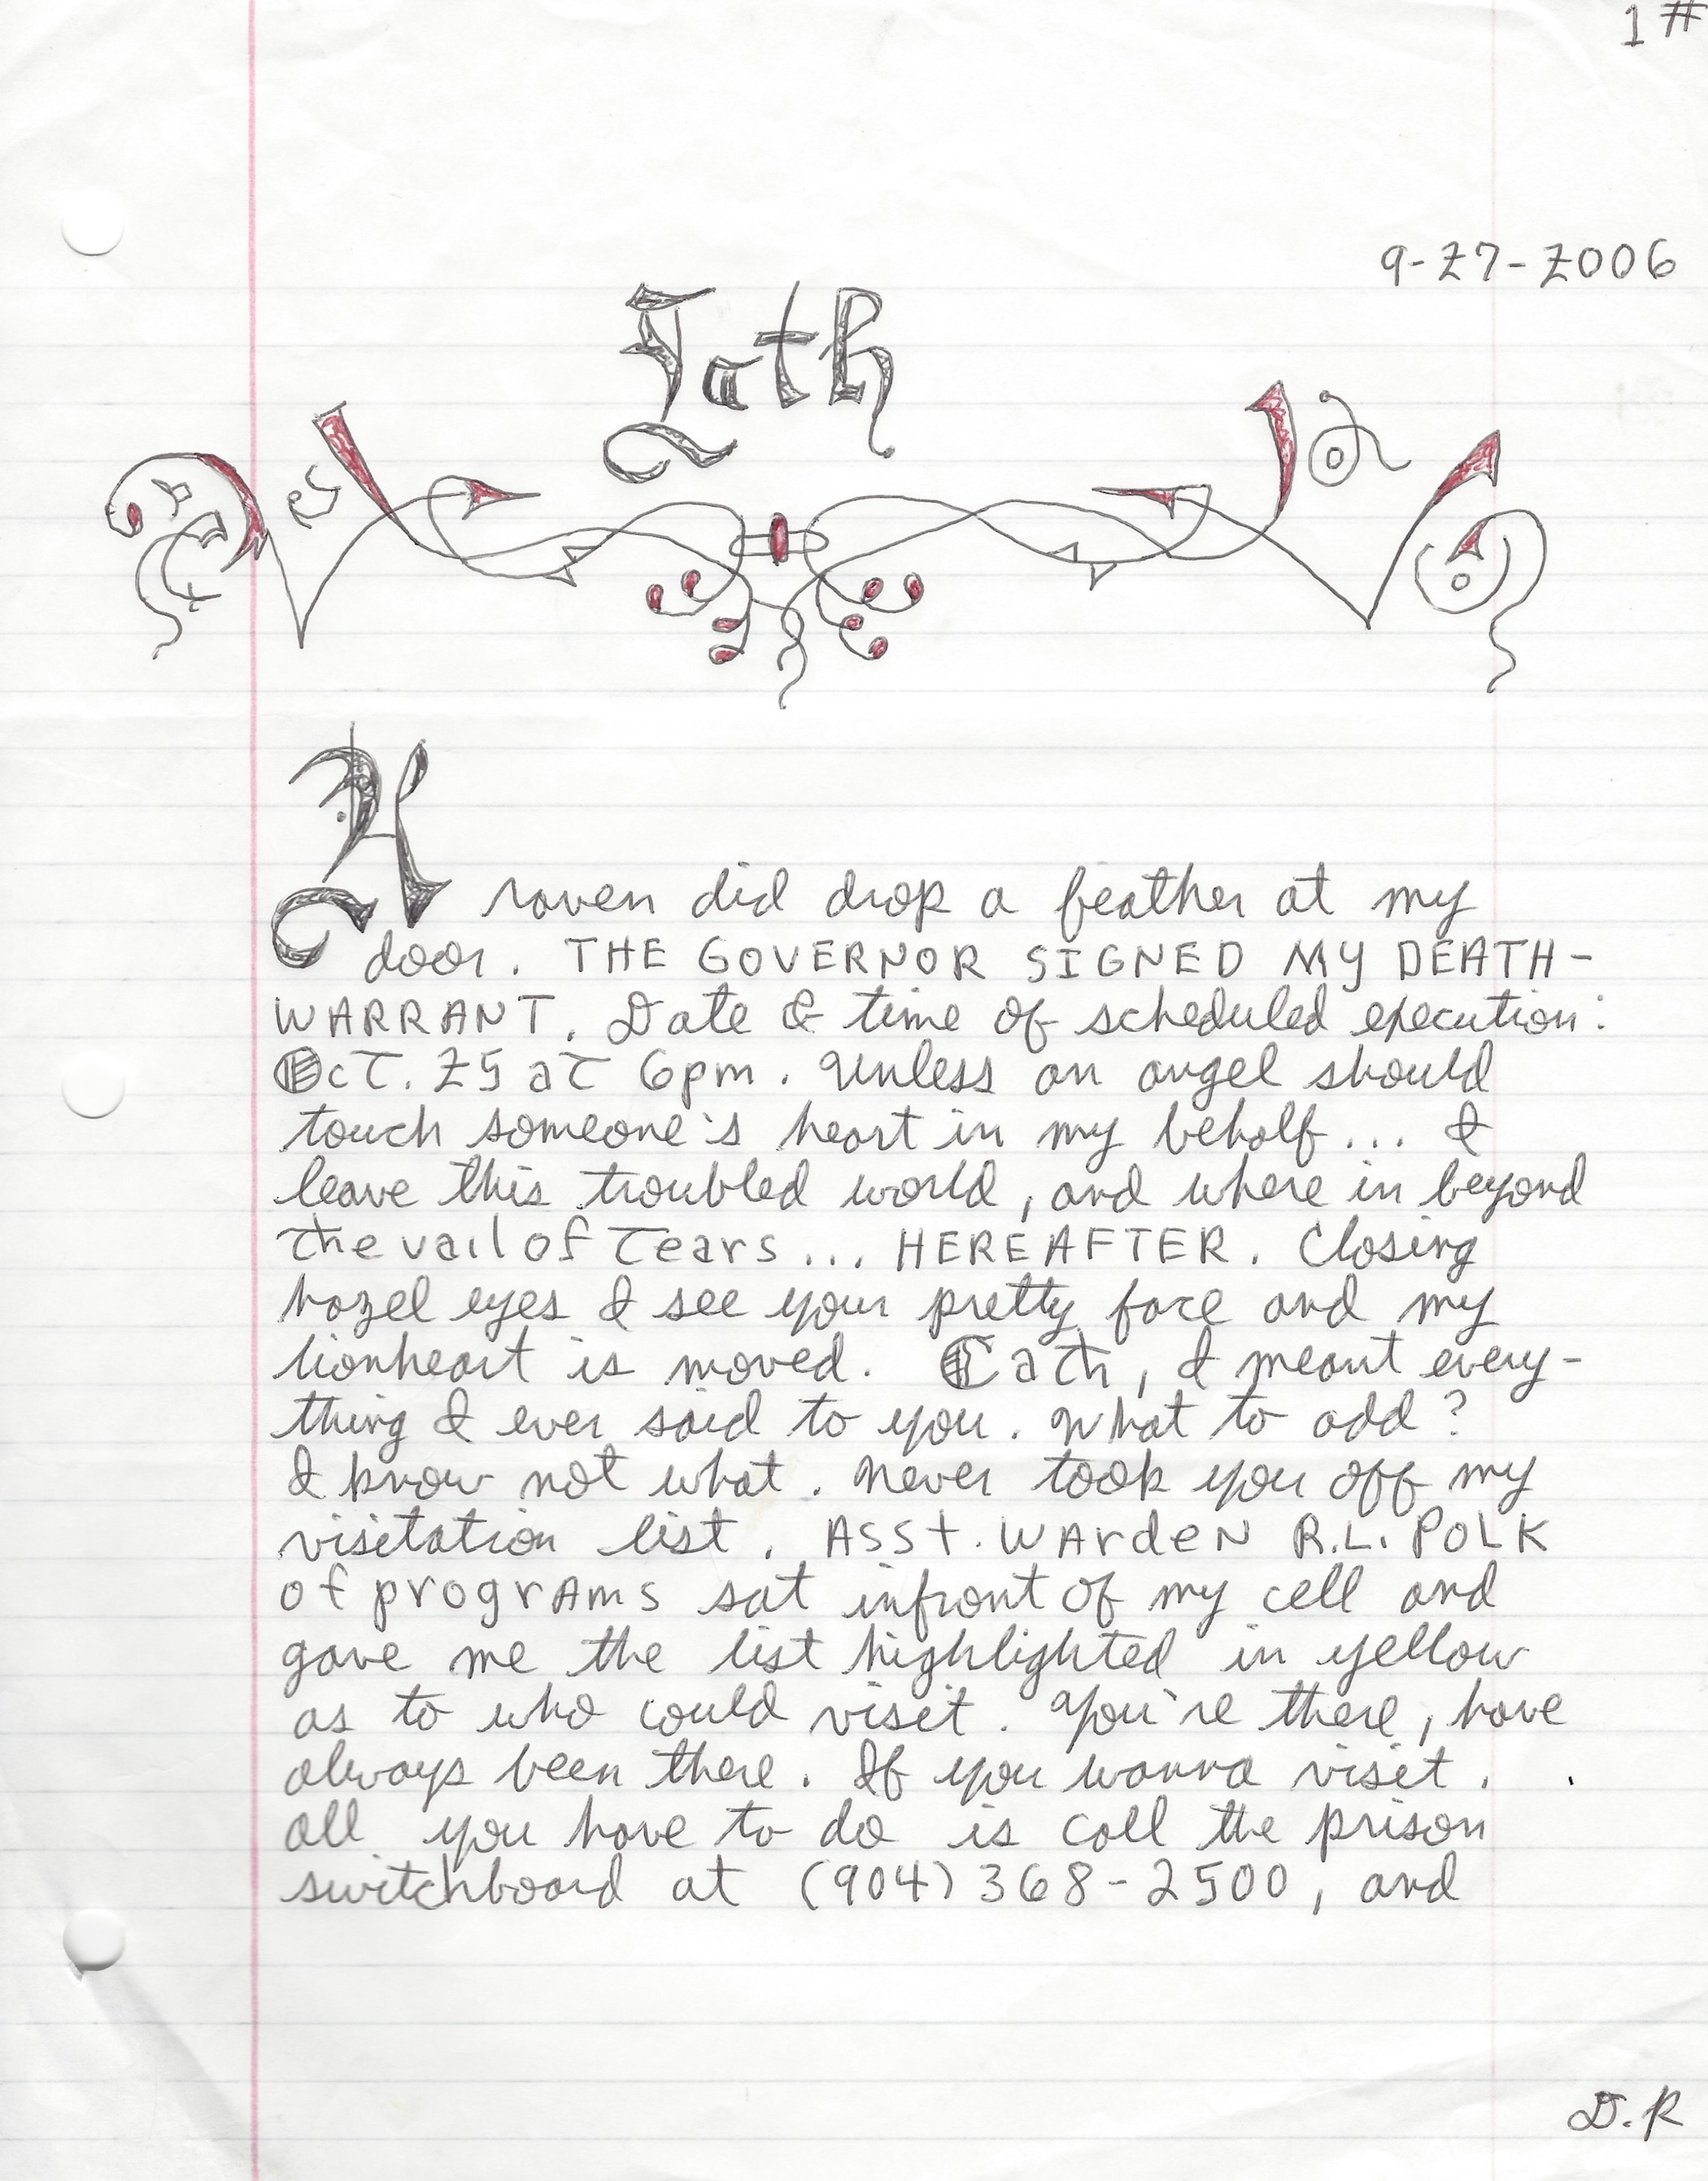 1#
9-27-2006
Cath
A raven did drop a feather at my
door. THE GOVERNOR SIGNED MY DEATH-
WARRANT. Date & time of scheduled execution:
Oct. 25 at 6pm. Unless an angel should
touch someone's heart in my behalf... I
leave this troubled world, and where in beyond
the vail of tears... HEREAFTER. Closing
hazel eyes I see your pretty face and my
lionheart is moved. Cath, I meant every-
thing I ever said to you. What to add?
I know not what. Never took you off my
visitation list. ASST. WARdeN R.L. POLK
of progrAms sat infront of my cell and
gave me the list highlighted in yellow
as to who could visit. You're there, have
always been there. If you wanna visit.
all you have to do is call the prison
switchboard at (904) 368-2500, and
D.R